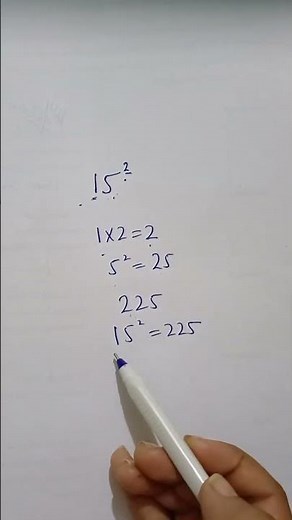 15²
1×2=2
5²=25
225
15²=225